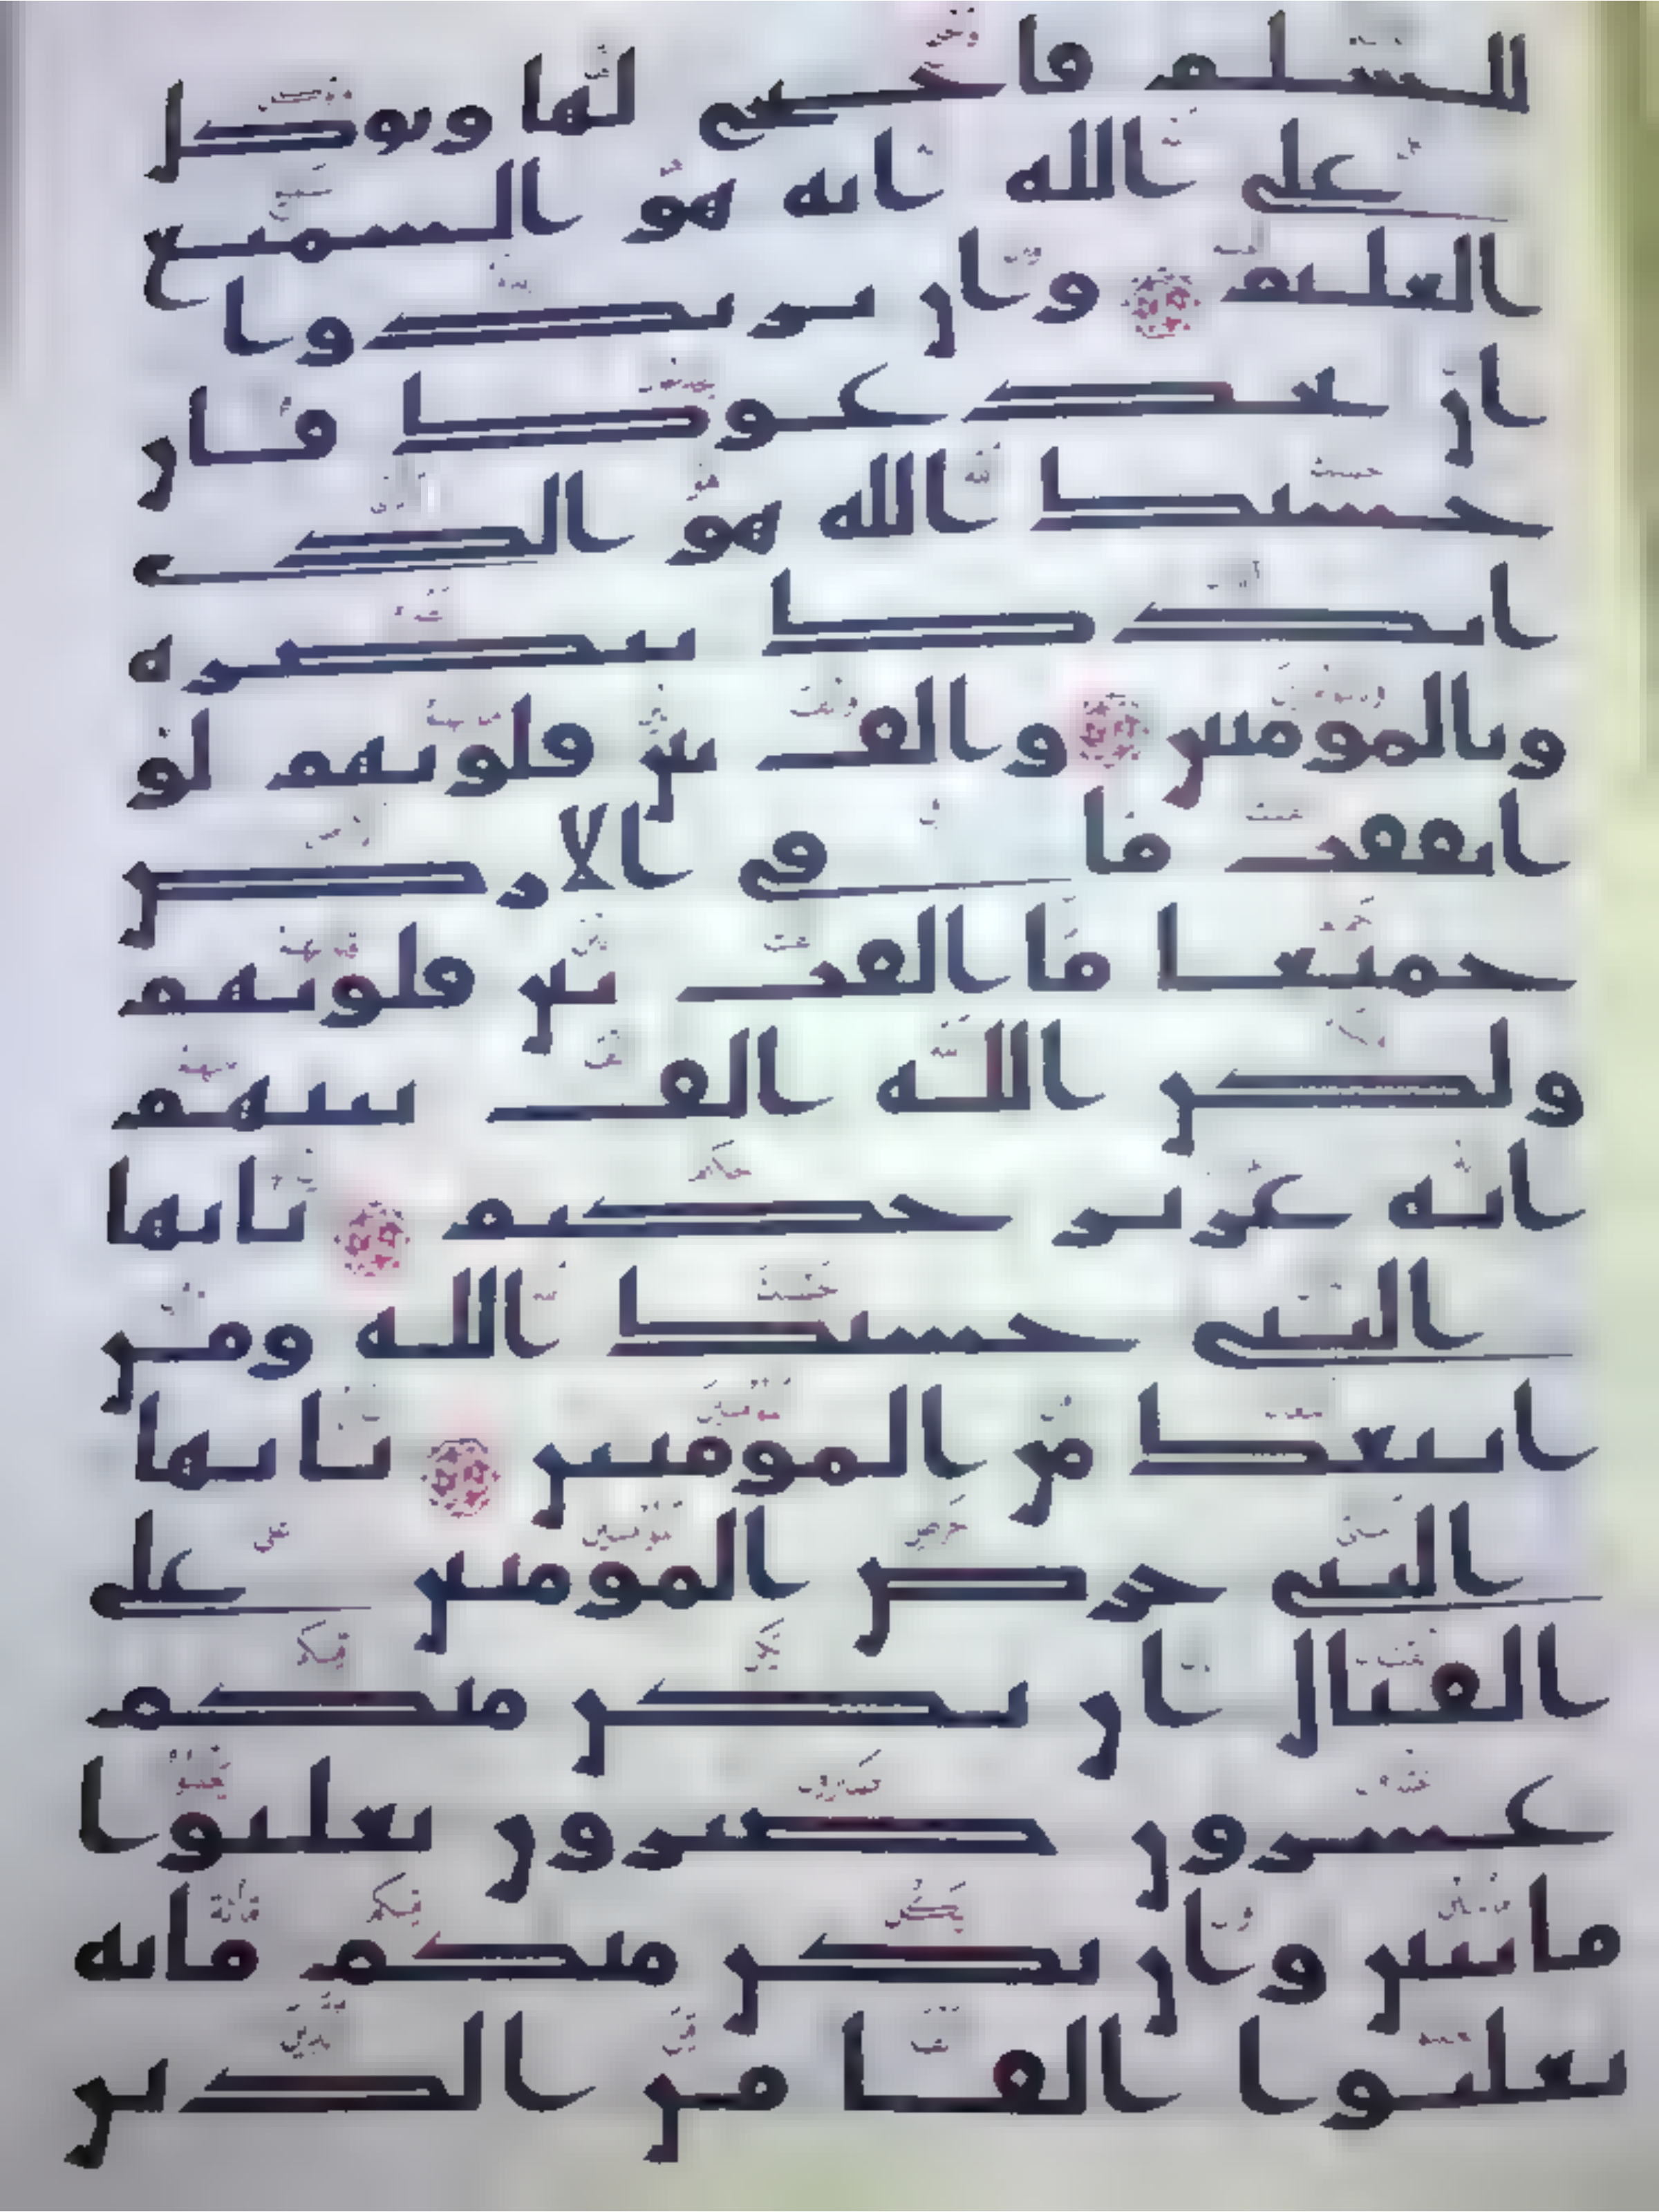 للسلم فاجنح لها وتوكل
على الله انه هو السميع
العليم وان يريدوا
ان يخدعوك فان
حسبك الله هو الذى
ايدك بنصره
وبالمومنين والف بين قلوبهم لو
انفقت ما فى الارض
جميعا ما الفت بين قلوبهم
ولكن الله الف بينهم
انه عزيز حكيم يايها
النبى حسبك الله ومن
اتبعك من المومنين يايها
النبى حرض المومنين على
القتال ان يكن منكم
عشرون صبرون يغلبوا
مايتين وان يكن منكم مايه
يغلبوا الفا من الذين